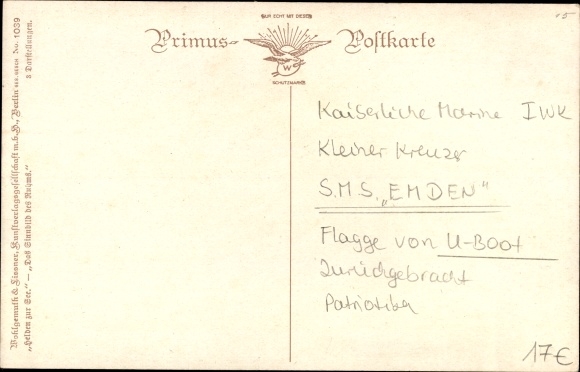 NUR ECHT MIT DIESER
Primus- Postkarte
W
SCHUTZMARKE
Wohlgemuth & Lissner, Kunstverlagsgesellschaft m.b.H., Berlin No. 1039
"Helden zur See." — "Das Sinnbild des Ruhms." 2 Darstellungen.
Kaiserliche Marine IWK
Kleiner Kreuzer
S.M.S. „EMDEN"
Flagge von U-Boot
Zurückgebracht
Patriotika
17€